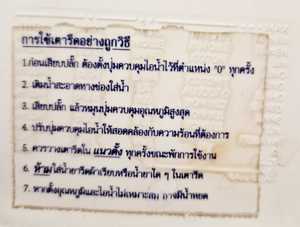 การใช้เตารีดอย่างถูกวิธี
1.ก่อนเสียบปลั๊ก ต้องตั้งปุ่มควบคุมไอน้ำไว้ที่ตำแหน่ง "0" ทุกครั้ง
2. เติมน้ำสะอาดทางช่องใส่น้ำ
3. เสียบปลั๊ก แล้วหมุนปุ่มควบคุมอุณหภูมิสูงสุด
4. ปรับปุ่มควบคุมไอน้ำให้สอดคล้องกับความร้อนที่ต้องการ
5. ควรวางเตารีดใน แนวตั้ง ทุกครั้งขณะพักการใช้งาน
6. ห้ามใส่น้ำยารีดผ้าเรียบหรือน้ำยาใด ๆ ในเตารีด
7. หากตั้งอุณหภูมิและไอน้ำไม่เหมาะสม อาจมีน้ำหยด